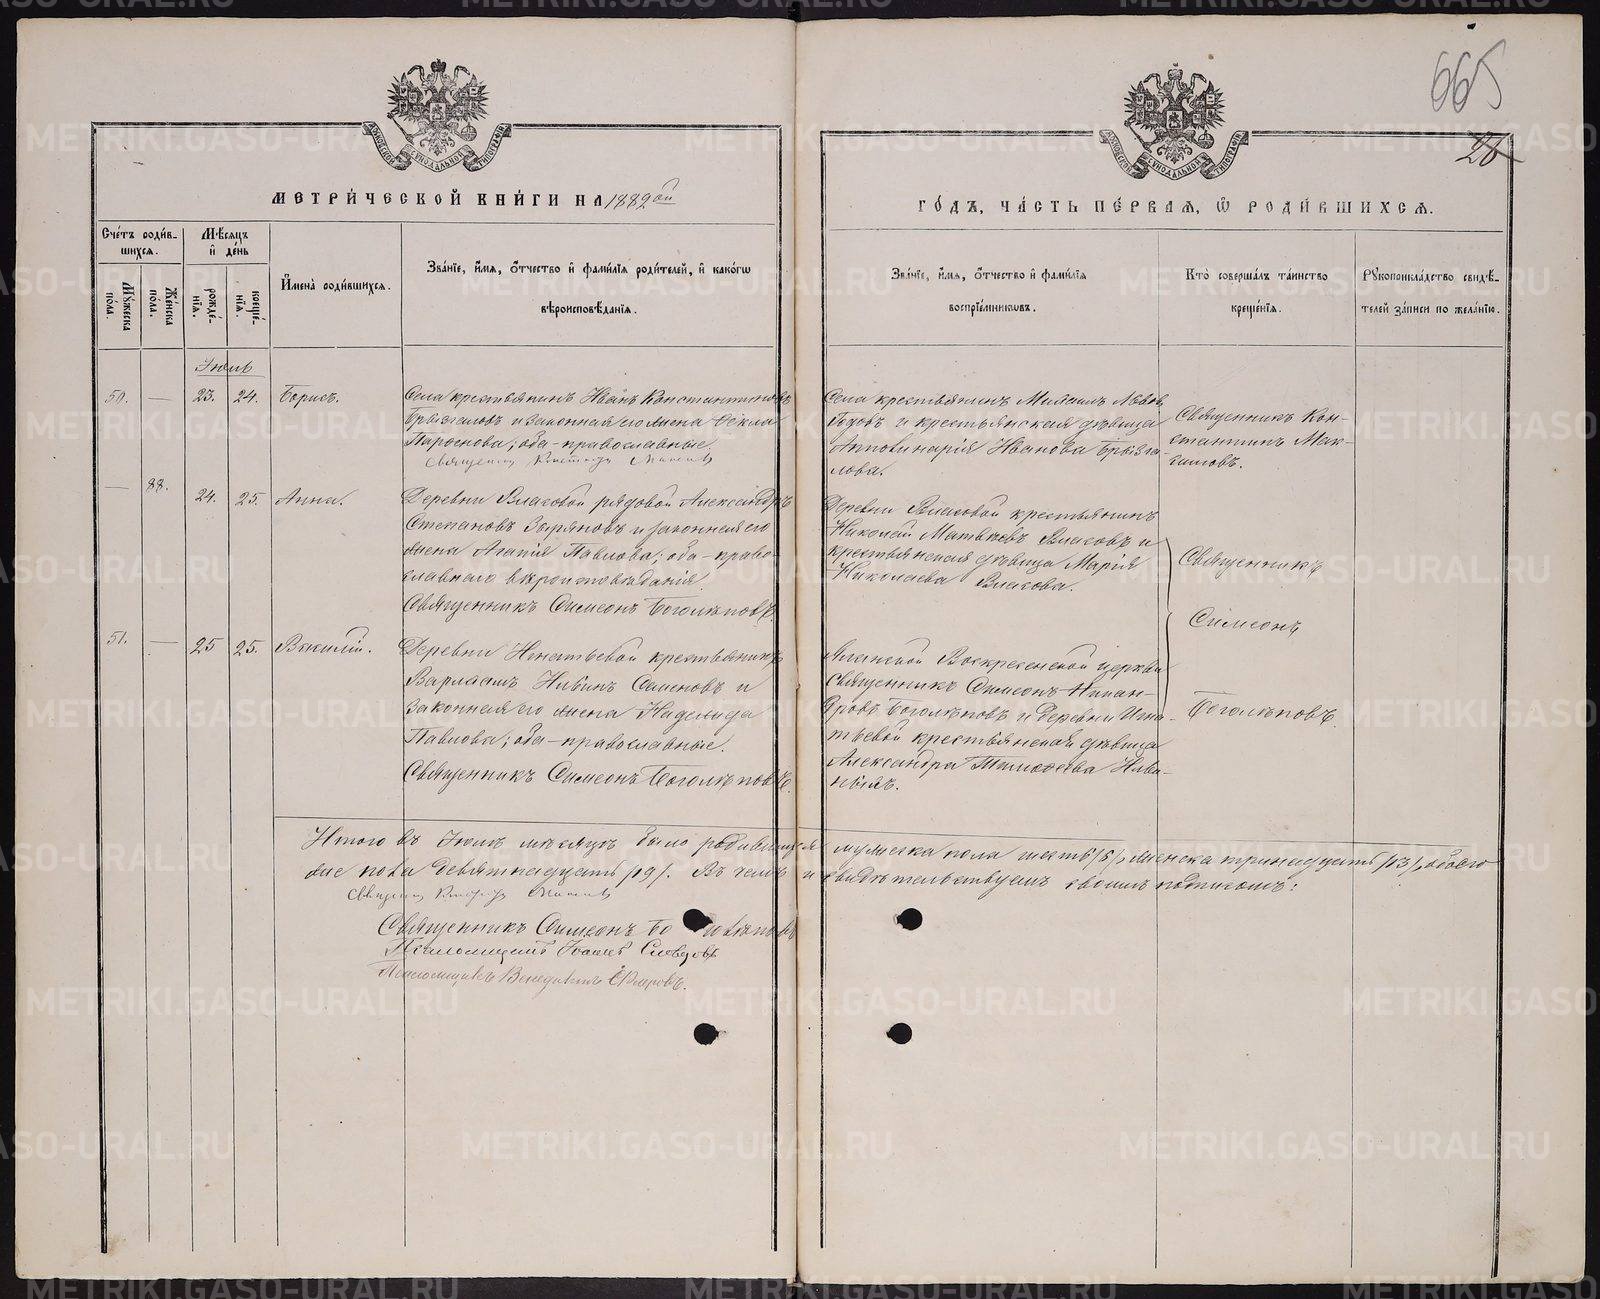 665
26
МОСКОВСКОЙ СѴНОДАЛЬНОЙ ТИПОГРАФІИ
МОСКОВСКОЙ СѴНОДАЛЬНОЙ ТИПОГРАФІИ
МЕТРИ́ЧЕСКОЙ КНИ́ГИ НА 1882ой
ГО́ДЪ, ЧА́СТЬ ПЕ́РВАЯ, Ѿ РОДИ́ВШИХСЯ.
Сче́тъ роди́в-
шихся.
Му́жеска по́ла.
Же́нска по́ла.
Мѣ́сяцъ
и҆ де́нь
рожде́-
нїя.
креще́-
нїя.
И҆мена̀ роди́вшихся.
Зва́нїе, и҆́мя, о҆́тчество и҆ фами́лїя роди́телей, и҆ како́гѡ
вѣроисповѣ́данїя.
Зва́нїе, и҆́мя, о҆́тчество и҆ фами́лїя
воспрїе́мниковъ.
Кто̀ соверша́лъ та́инство
креще́нїя.
Рукоприкла́дство свидѣ́-
телей за́писи по жела́нїю.
Іюль
50. — 23. 24. Борисъ.
Села крестьянинъ Иванъ Константиновъ
Брызгаловъ и законная его жена Ѳекла
Парѳенова; оба-православные.
Священникъ Констант Максимов
Села крестьянинъ Михаилъ Львовъ
и крестьянская дѣвица
Апполинарія Иванова Брызга-
лова.
Священникъ Кон-
стантинъ Мак-
симовъ.
— 88. 24. 25. Анна.
Деревни Власовой рядовой Александръ
Степановъ Зыряновъ и законная его
жена Агапія Павлова; оба-право-
славнаго вѣроисповѣданія.
Священникъ Симеонъ Боголѣповъ.
Деревни Власовой крестьянинъ
Николай Матвѣевъ Власовъ и
крестьянская дѣвица Марія
Николаева Власова.
Священникъ
Симеонъ
Боголѣповъ.
51. — 25 25. Василій.
Деревни Игнатьевой крестьянинъ
Варлаамъ Нивинъ Семеновъ и
законная его жена Надежда
Павлова; оба-православные.
Священникъ Симеонъ Боголѣповъ.
Яланской Воскресенской церкви
священникъ Симеонъ Никан-
дровъ Боголѣповъ и деревни Игна-
тьевой крестьянская дѣвица
Александра Тимоѳеева Ниви-
ныхъ.
Итого въ Іюлѣ мѣсяцѣ было родившихся мужеска пола шесть /6/, женска тринадцать /13/, обоего
пола девятнадцать /19/. Въ чемъ и свидѣтельствуемъ своимъ подписомъ:
Священник Констант Максимов
Священникъ Симеонъ Боголѣповъ
Псаломщикъ Іоаннъ Словцовъ
Псаломщикъ Венедиктъ
METRIKI.GASO-URAL.RU